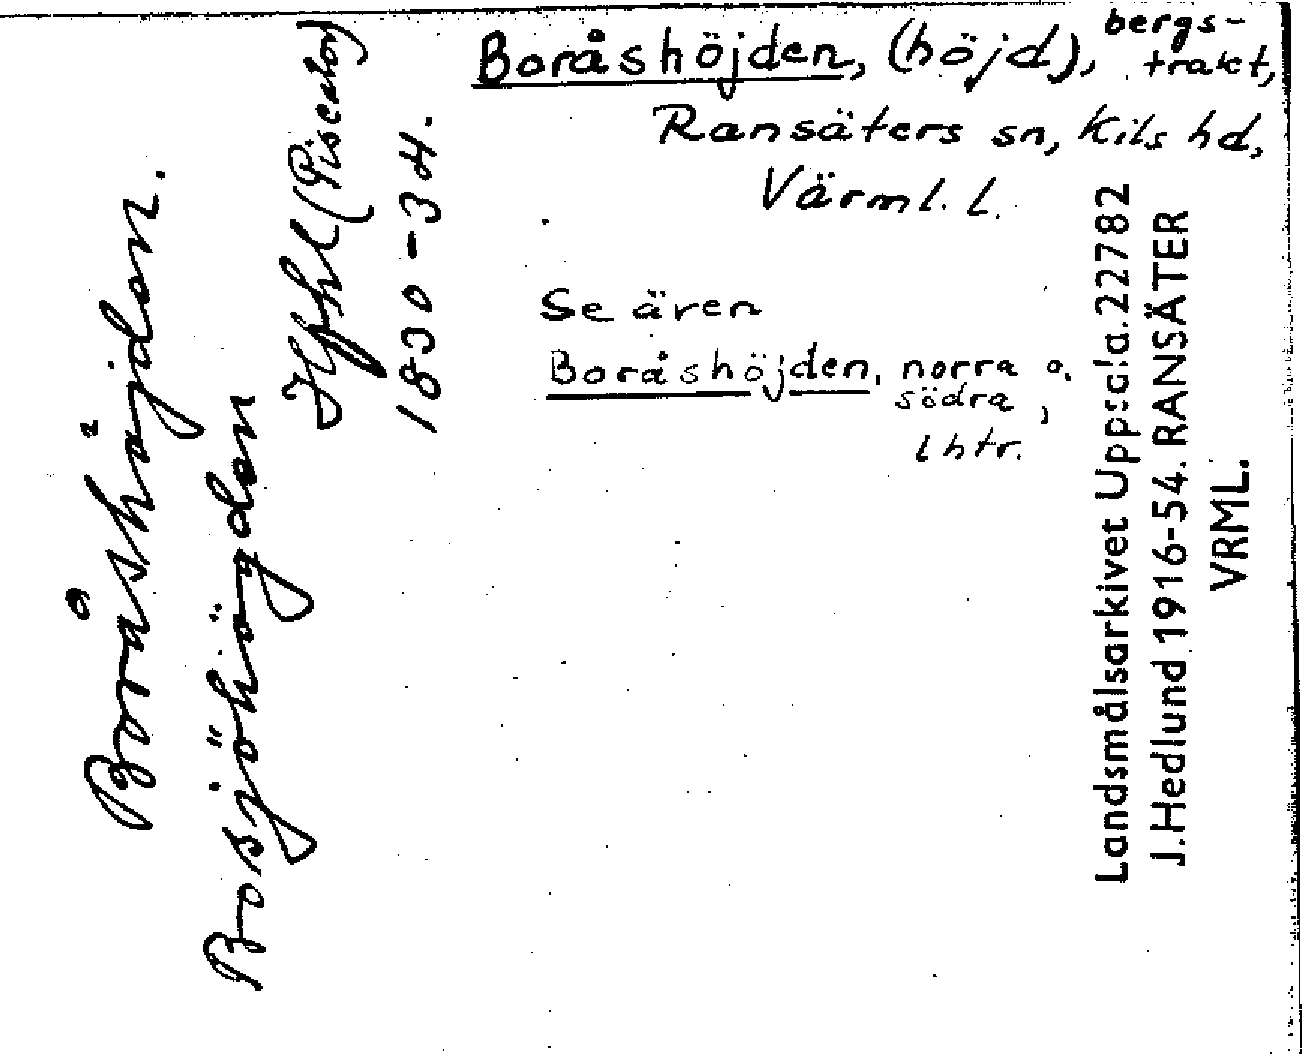 Boråshöjden, (höjd), bergs-
trakt,
Ransäters sn, Kils hd,
Värml. l.
Se även
Boråshöjden, norra o.
södra,
lhtr.
Boråshöjdon.
Bosjöhögdon
(Piscator)
1830-34.
Landsmålsarkivet Uppsala. 22782
J. Hedlund 1916-54. RANSÄTER
VRML.